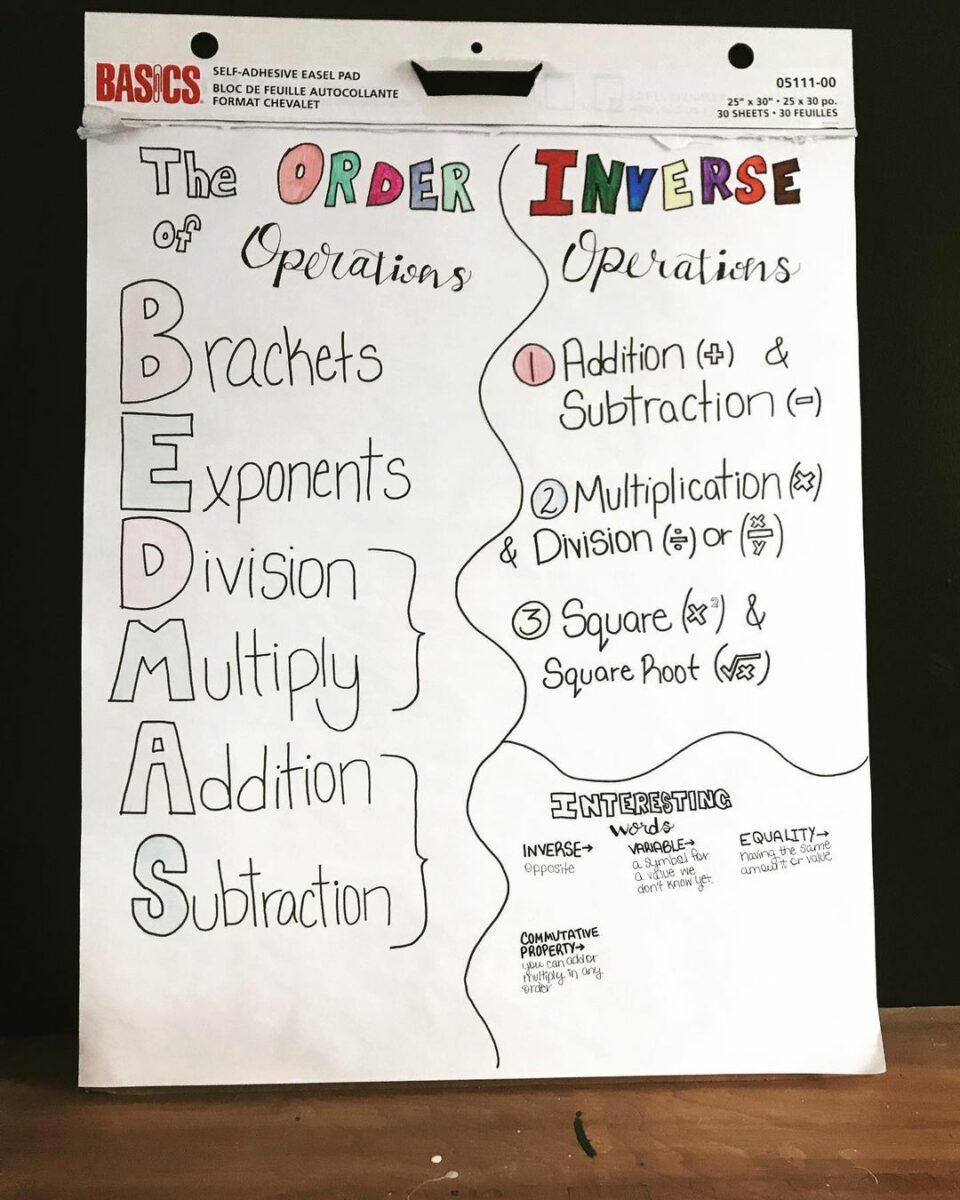 BASICS
SELF-ADHESIVE EASEL PAD
BLOC DE FEUILLE AUTOCOLLANTE
FORMAT CHEVALET
05111-00
25" x 30" • 25 x 30 po.
30 SHEETS • 30 FEUILLES
The ORDER
of Operations
Brackets
Exponents
Division
Multiply
Addition
Subtraction
INVERSE
Operations
1 Addition (+) &
Subtraction (-)
2 Multiplication (x)
& Division (÷) or (x/y)
3 Square (x²) &
Square Root (√x)
INTERESTING
words
INVERSE→
opposite
VARIABLE→
a symbol for
a value we
don't know yet.
EQUALITY→
having the same
amou't or value
COMMUTATIVE
PROPERTY→
you can add or
multiply in any
order